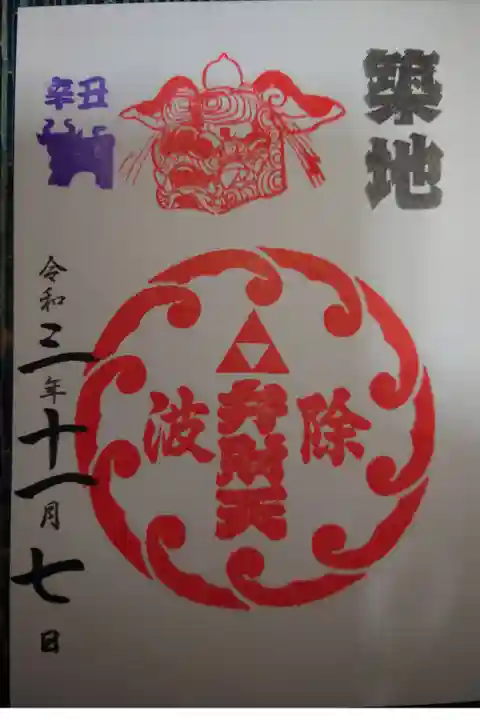 築地
除波
弁財天
辛丑
令和三年十一月七日